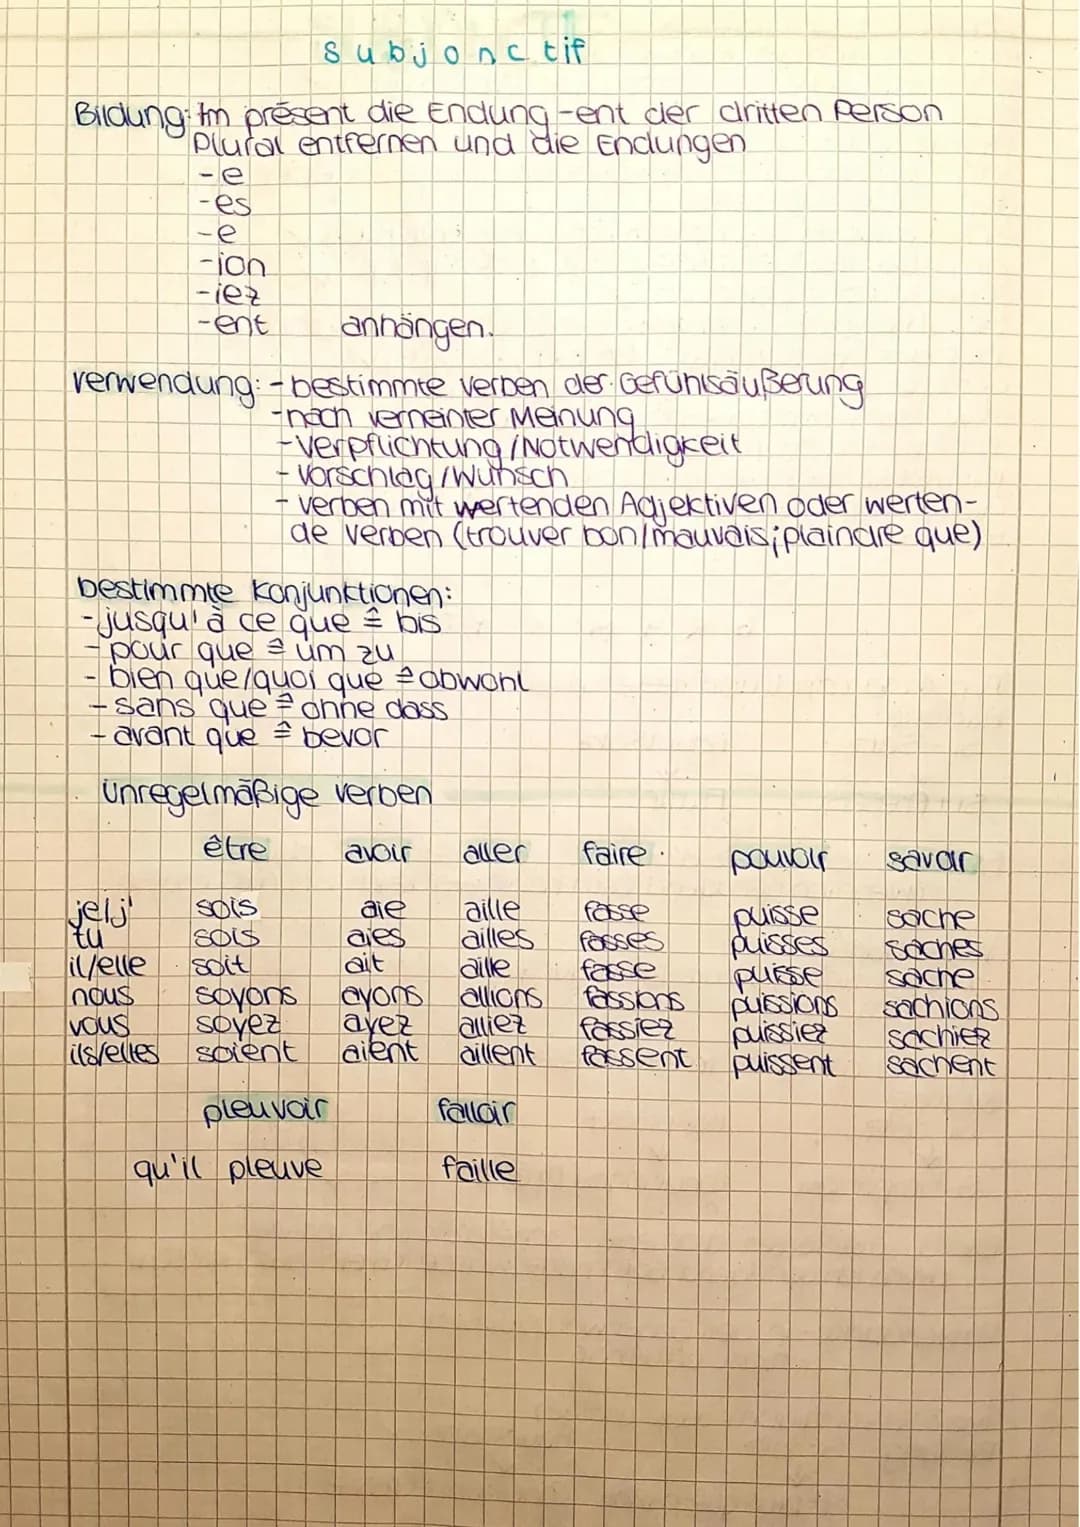 Subjonctif
Bildung: Im présent die Endung -ent der dritten Person
Plural entfernen und die Endungen
-e
-es
-e
-ion
-iez
-ent anhängen.
Verwendung: - bestimmte Verben der Gefühlsäußerung
- nach verneinter Meinung
- Verpflichtung/Notwendigkeit
- Vorschlag/Wunsch
- Verben mit wertenden Adjektiven oder werten-
de Verben (trouver bon/mauvais; plaindre que)
bestimmte Konjunktionen:
- jusqu'à ce que ≙ bis
- pour que ≙ um zu
- bien que/quoi que ≙ obwohl
- sans que ≙ ohne dass
- avant que ≙ bevor
Unregelmäßige Verben
être avoir aller faire pouvoir savoir
je/j' sois aie aille fasse puisse sache
tu sois aies ailles fasses puisses saches
il/elle soit ait aille fasse puisse sache
nous soyons ayons allions fassions puissions sachions
vous soyez ayez alliez fassiez puissiez sachiez
ils/elles soient aient aillent fassent puissent sachent
pleuvoir falloir
qu'il pleuve faille